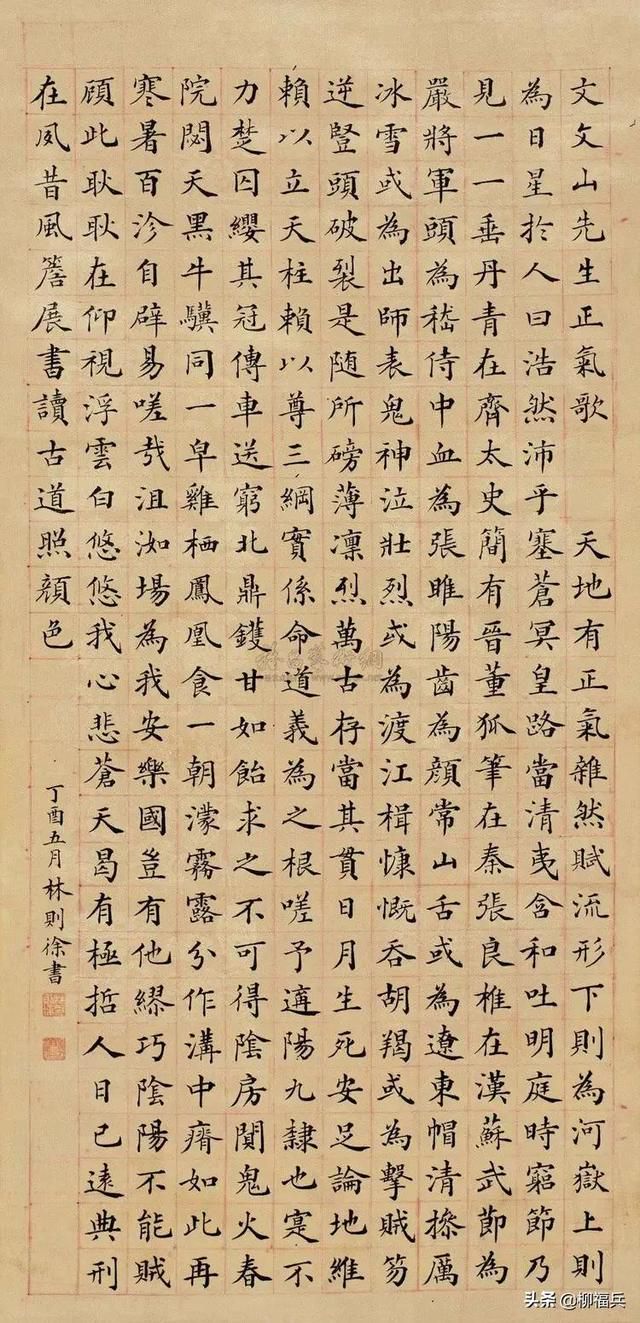 文文山先生正氣歌 天地有正氣雜然賦流形下則為河嶽上則
為日星於人曰浩然沛乎塞蒼冥皇路當清夷含和吐明庭時窮節乃
見一一垂丹青在齊太史簡有晉董狐筆在秦張良椎在漢蘇武節為
嚴將軍頭為嵇侍中血為張睢陽齒為顏常山舌或為遼東帽清操厲
冰雪或為出師表鬼神泣壯烈或為渡江楫慷慨吞胡羯或為擊賊笏
逆豎頭破裂是随所磅薄凛烈萬古存當其貫日月生死安足論地維
賴以立天柱賴以尊三綱實係命道義為之根嗟予遘陽九隸也寔不
力楚囚纓其冠傳車送窮北鼎鑊甘如飴求之不可得陰房闃鬼火春
院閟天黑牛驥同一皁雞栖鳳凰食一朝濛霧露分作溝中瘠如此再
寒暑百沴自辟易嗟哉沮洳場為我安樂國豈有他繆巧陰陽不能賊
顧此耿耿在仰視浮雲白悠悠我心悲蒼天曷有極哲人日已遠典刑
在夙昔風簷展書讀古道照顏色
丁酉五月林則徐書
头条 @柳福兵